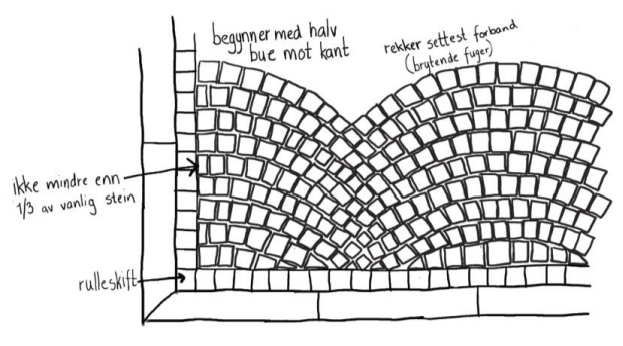 begynner med halv
bue mot kant
rekker settest forband
(brytende fuger)
ikke mindre enn
1/3 av vanlig stein
rulleskift